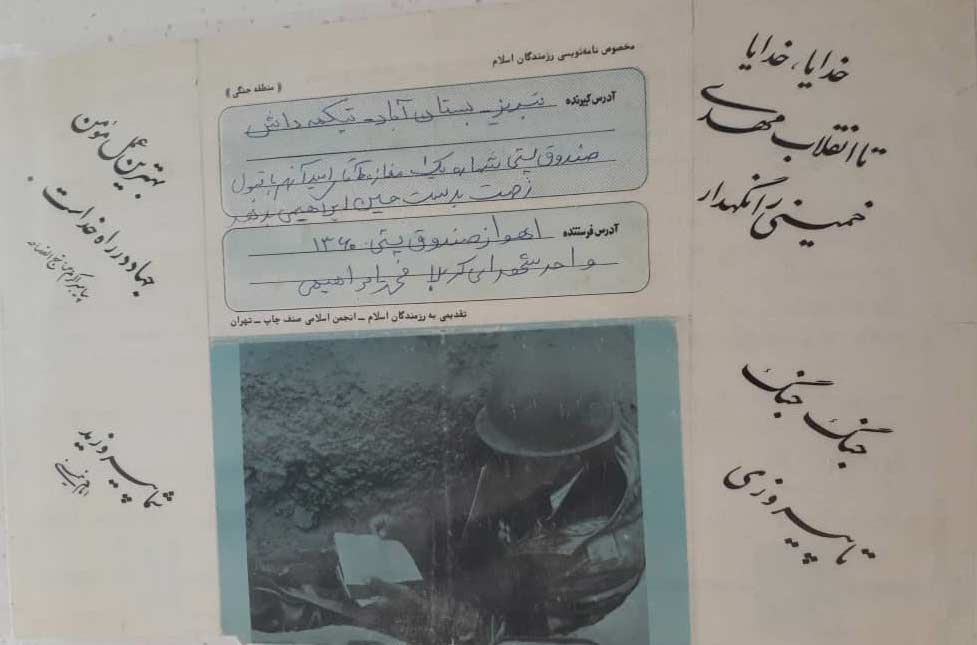 خدایا، خدایا
تا انقلاب مهدی
خمینی را نگهدار
جنگ جنگ
تا پیروزی
مخصوص نامه‌نویسی رزمندگان اسلام
(( منطقه جنگی ))
آدرس گیرنده تبریز - بستان آباد - تیکمه داش
صندوق پستی شماره یک مغازه آقای
زحمت بدست حسین ابراهیمی برسد
آدرس فرستنده اهواز صندوق پستی ۱۳۶۰
واحد شهدای کربلا ابراهیمی
تقدیمی به رزمندگان اسلام ــ انجمن اسلامی صنف چاپ ــ تهران
بهترین عمل مؤمن
جهاد در راه خداست .
شما پیروزید
امام خمینی